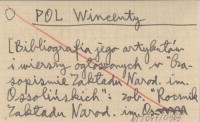 O POL Wincenty
[Bibliografia jego artykułów
i wierszy ogłoszonych w "Cza-
sopiśmie Zakładu Narod. im.
Ossolińskich": zob. "Rocznik
Zakładu Narod. im.